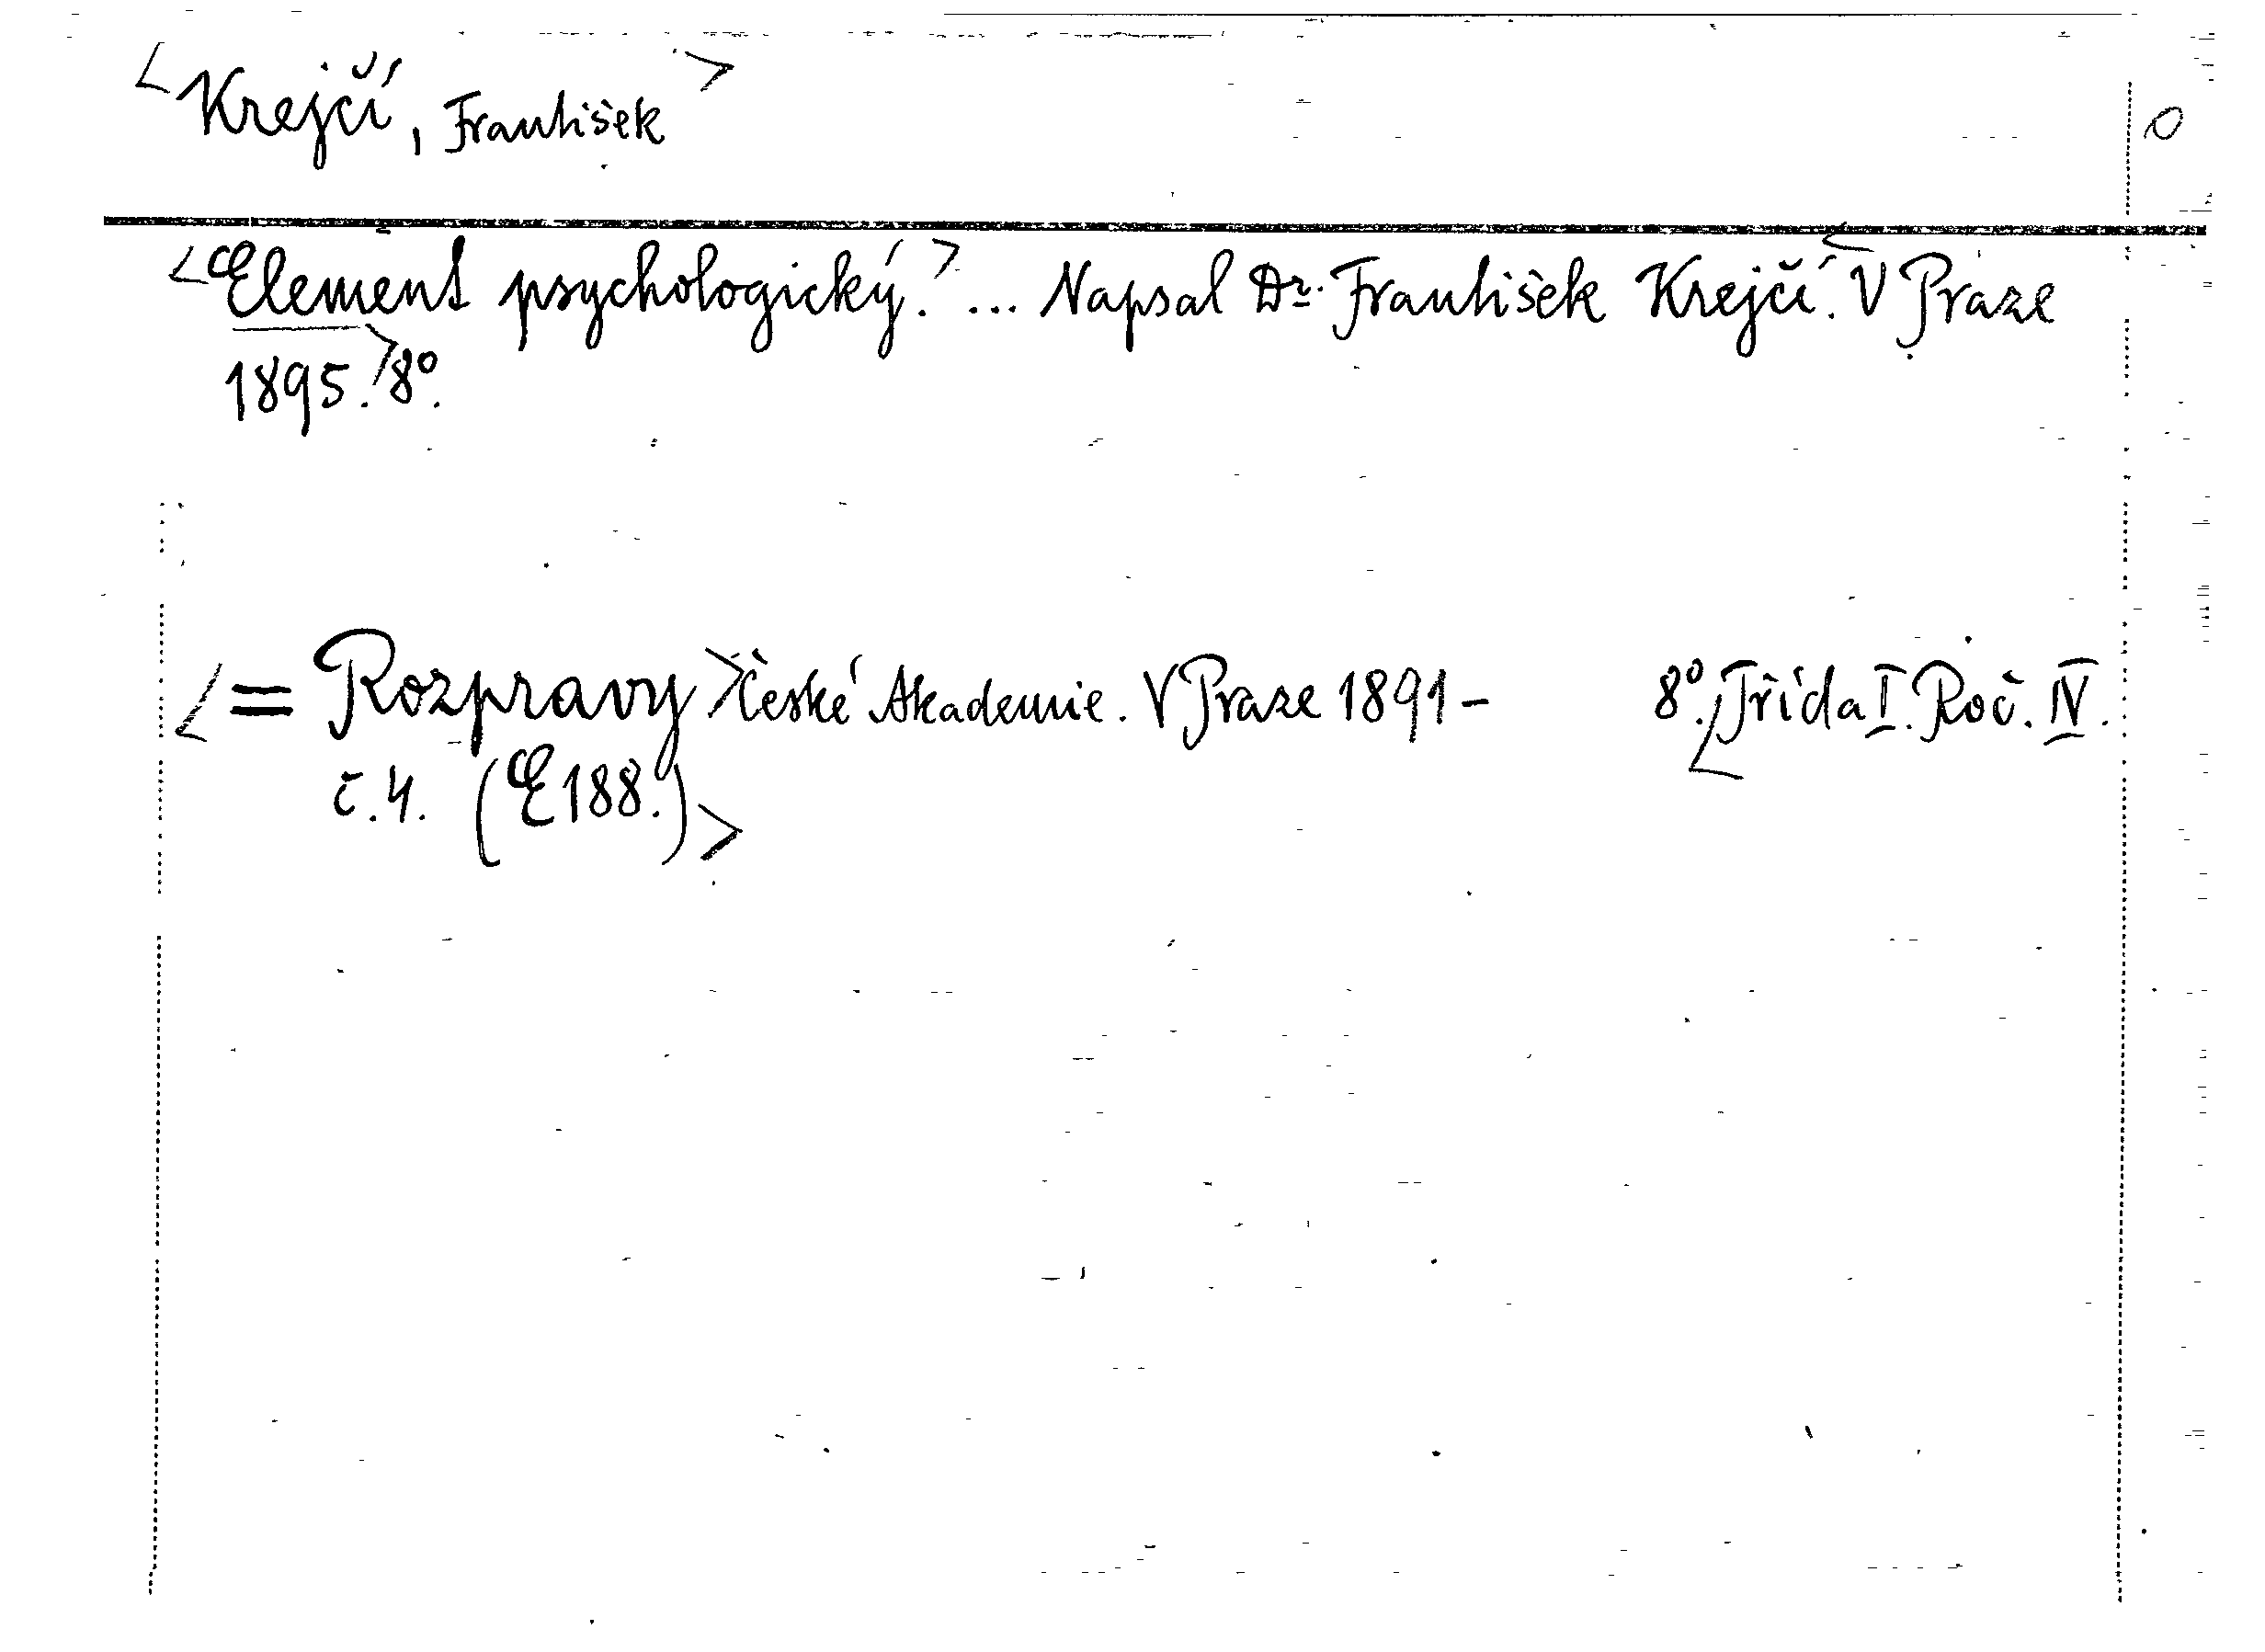 <Krejčí, František> O
<Element psychologický.> ... Napsal Dr. František Krejčí. <V Praze
1895.> 8°.
<= Rozpravy> České Akademie. V Praze 1891- 8°. <Třída I. Roč. IV.
č. 4. (E 188.)>